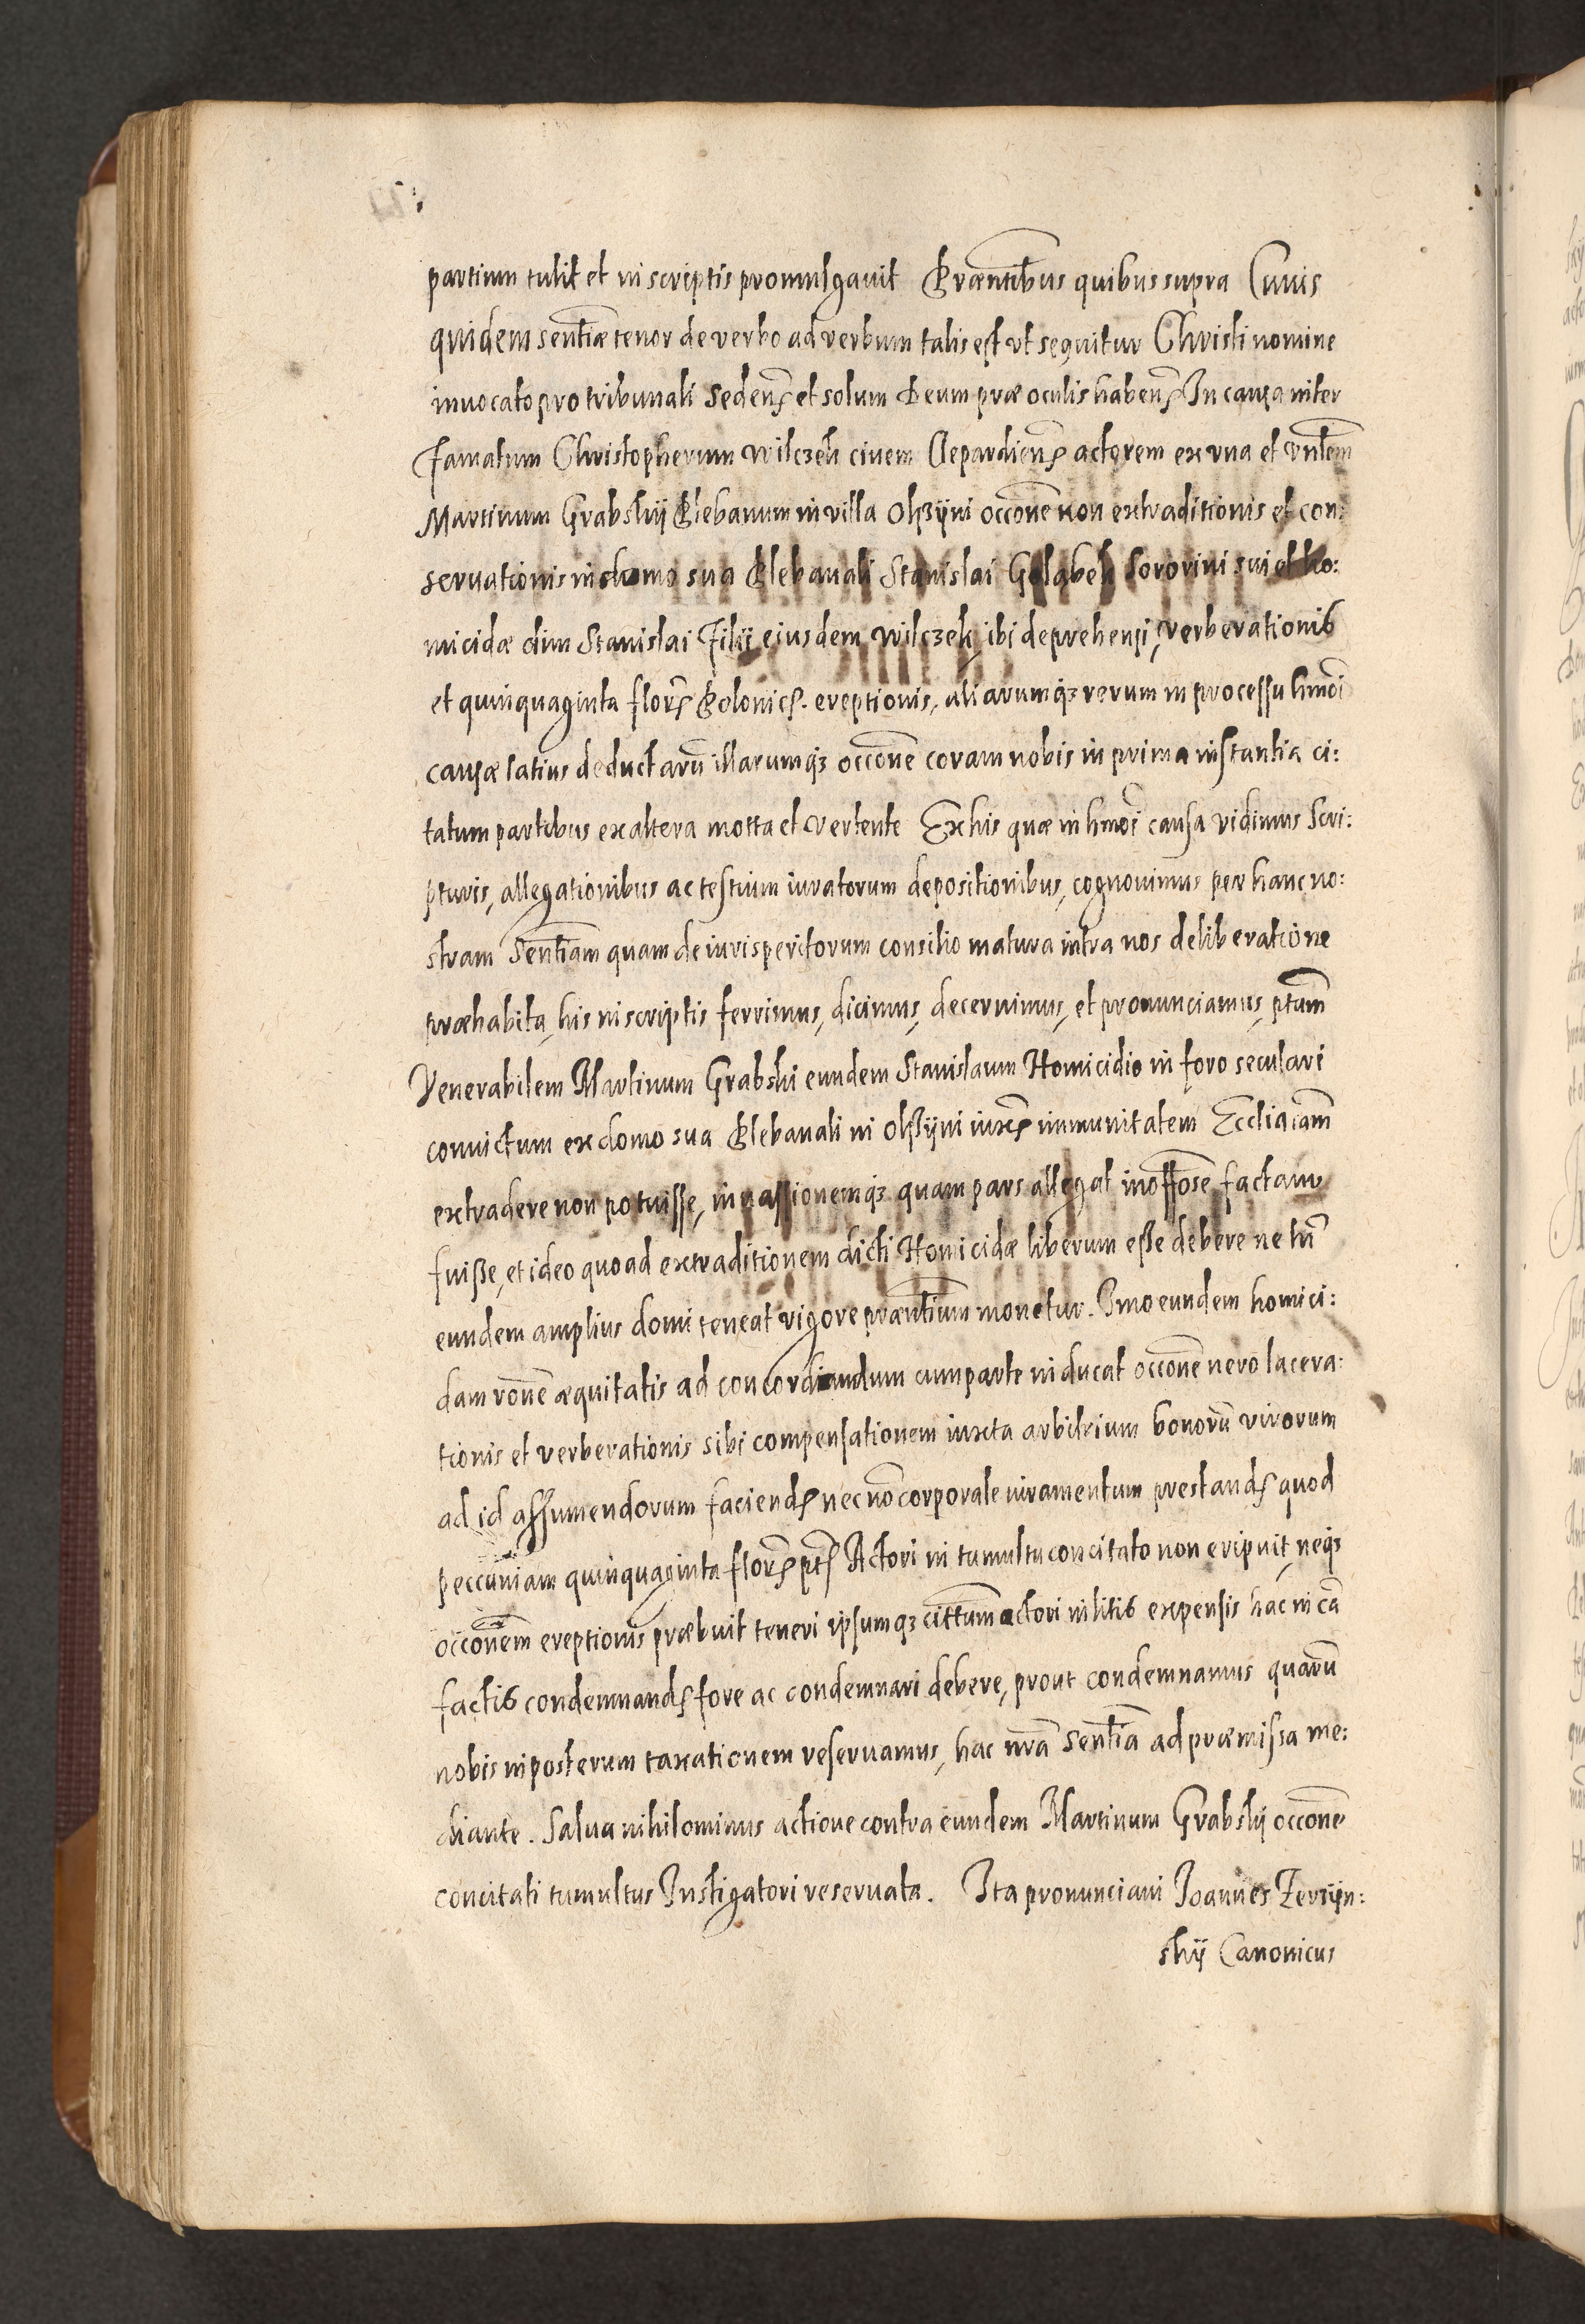 partium tulit et in scriptis promulgavit Præntibus quibus supra Cuius
quidem sentiæ tenor de verbo ad verbum talis est vt sequitur Christi nomine
invocato pro tribunali sedenš et solum Deum præ oculis habenš In causa inter
famatum Christopherum Wilczek civem Clepardienš actorem ex vna et vntem
Martinum Grabskij Plebanum in villa Olssijni occone non extraditionis et con:
servationis in domo sua Plebanali Stanislai Golabek Sororini sui et ho:
micidæ olim Stanislai Filij eiusdem Wilczek, ibi deprehensi, verberationis
et quinquaginta flor. Polonic. ereptionis, aliarumq3 rerum in processu hmoi
causæ latius deductaru illarumq3 occone coram nobis in prima instantia ci:
tatum partibus ex altera motta et vertente Ex his quæ in hmoi causa vidimus Scri:
pturis, allegationibus ac testium iuratorum depositionibus, cognovimus per hanc no:
stram Sentiam quam de iurisperitorum consilio matura intra nos deliberatione
præhabita, his in scriptis ferrimus, dicimus, decernimus, et pronunciamus, ptum
Venerabilem Martinum Grabski eundem Stanislaum Homicidio in foro seculari
convictum ex domo sua Plebanali in Olssijni iuxta immunitatem Eccliacam
extradere non potuisse, invassionemq3 quam pars allegat inoffose factam
fuisse, et ideo quoad extraditionem dicti Homicidæ liberum esse debere ne tn
eundem amplius domi teneat vigore præntium monetur. Imo eundem homici:
dam rone æquitatis ad concordiandum cum parte inducat occone vero lacera:
tionis et verberationis sibi compensationem iuxta arbitrium bonoru virorum
ad id assumendorum faciend. nec no corporale iuramentum prestand. quod
peccuniam quinquaginta flor. pt. Actori in tumultu concitato non eripuit, neq3
occonem ereptionis præbuit teneri ipsumq3 cittum actori in litis expensis hac in ca
factis condemnand. fore ac condemnari debere, prout condemnamus quaru
nobis in posterum taxationem reservamus, hac nra Sentia ad præmissa me:
diante. Salva nihilominus actione contra eundem Martinum Grabskij occone
concitati tumultus Instigatori reservata. Ita pronunciavi Joannes Zerzijn:
skij Canonicus